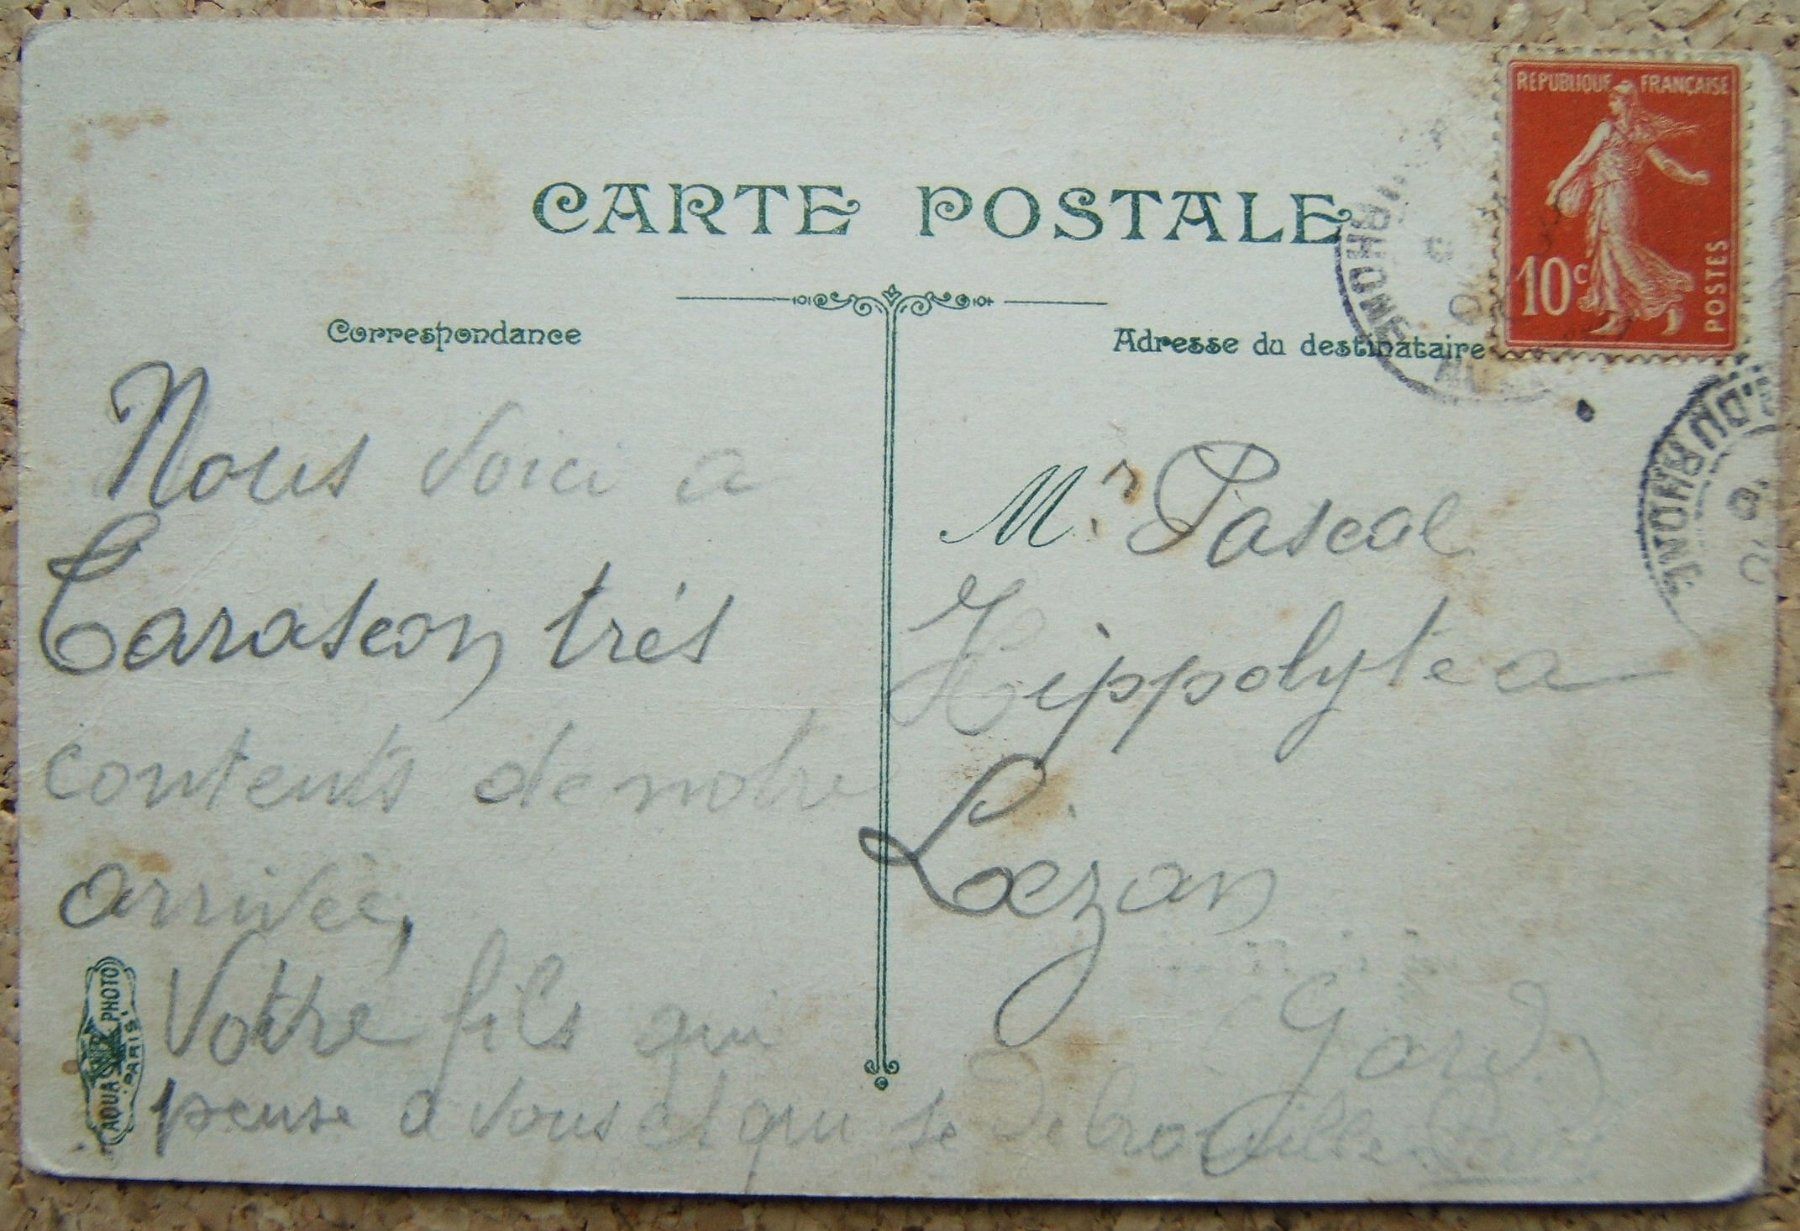 REPUBLIQUE FRANÇAISE
10c
POSTES
CARTE POSTALE
Correspondance
Adresse du destinataire
Nous voici a
Tarascon trés
contents de notre
arrivée,
Votre fils qui
pense a vous et qui se debrouille
Mr. Pascal
Hippolyte a
Lézan
Gard
AQUA PHOTO
PARIS